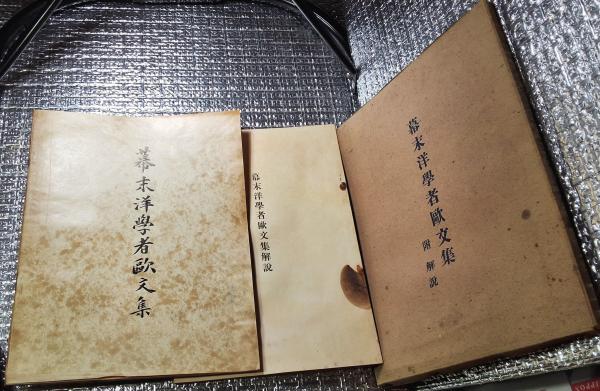 幕末洋學者歐文集
幕末洋學者歐文集解說
幕末洋學者歐文集
附解說